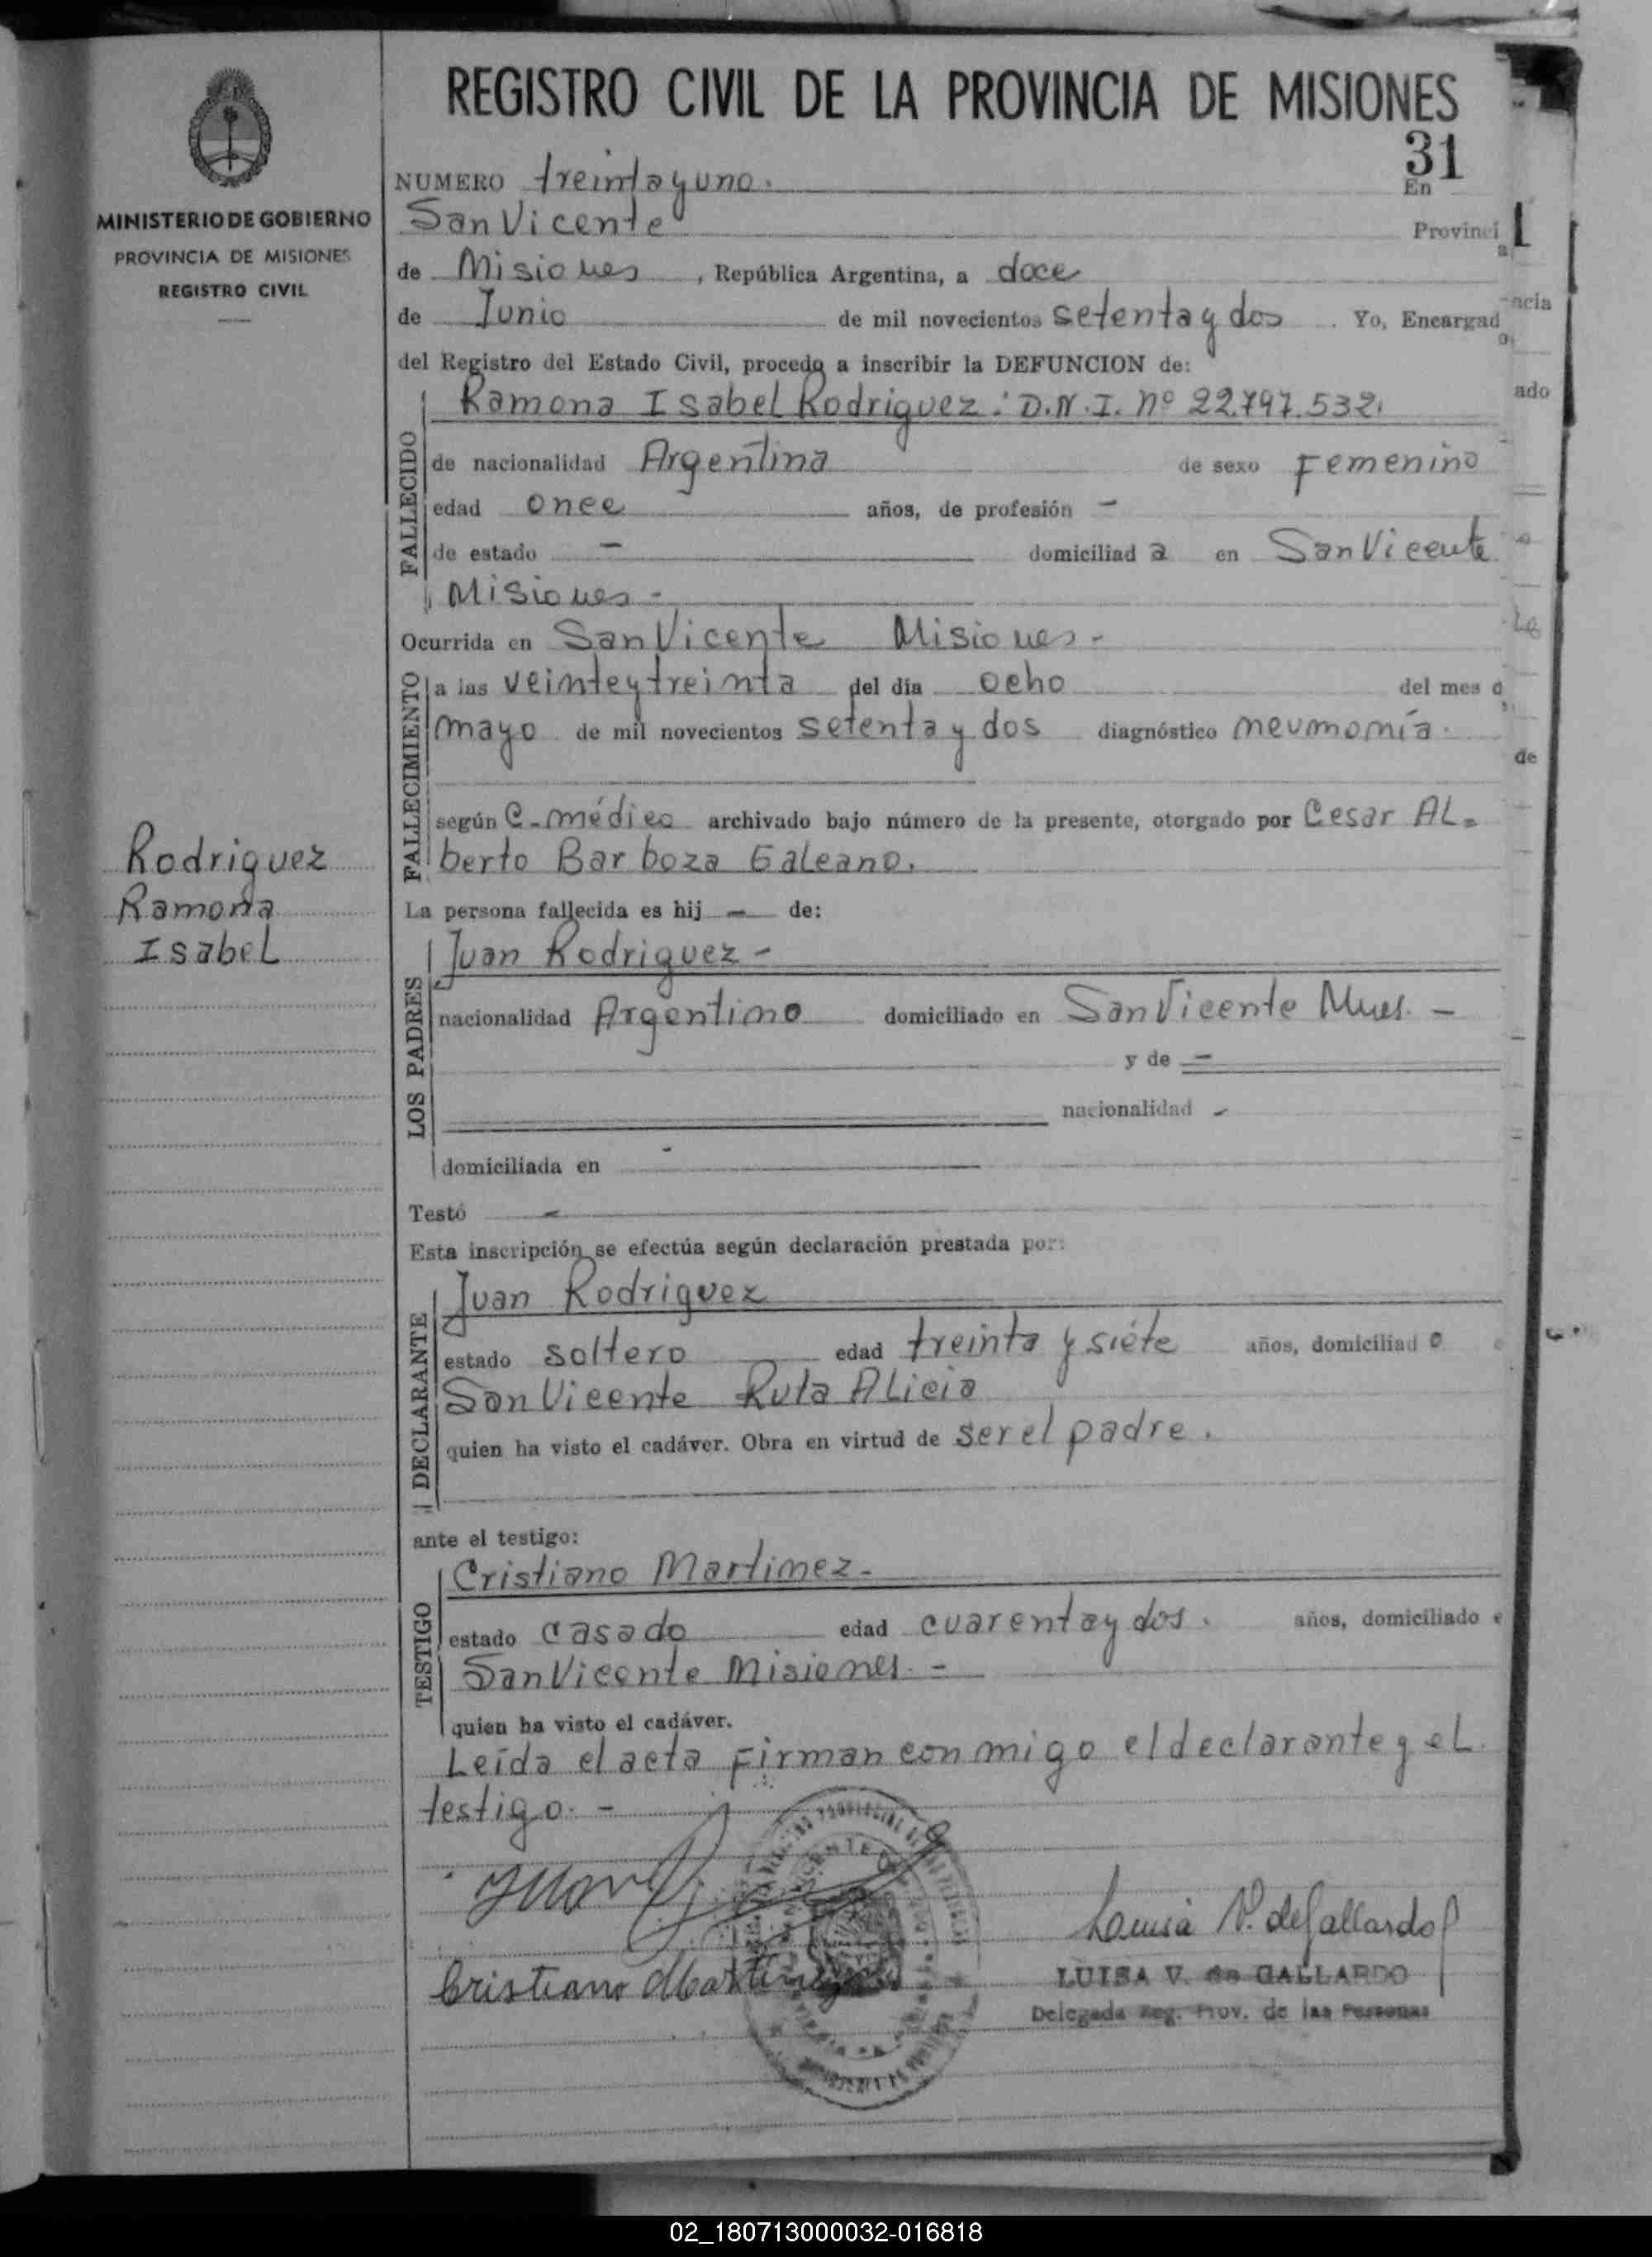 REGISTRO CIVIL DE LA PROVINCIA DE MISIONES
31
MINISTERIO DE GOBIERNO
PROVINCIA DE MISIONES
REGISTRO CIVIL
Rodriguez
Ramona
Isabel
NUMERO treinta y uno. En
San Vicente Provinci
a
de Misiones, República Argentina, a doce
de Junio de mil novecientos setenta y dos. Yo, Encargad
o
del Registro del Estado Civil, procedo a inscribir la DEFUNCION de:
FALLECIDO
Ramona Isabel Rodriguez. D.N.I. nº 22.797.532.
de nacionalidad Argentina de sexo Femenino
edad once años, de profesión -
de estado - domiciliad a en San Vicente
Misiones -
Ocurrida en San Vicente Misiones -
FALLECIMIENTO
a las veinte y treinta del día ocho del mes d
mayo de mil novecientos setenta y dos diagnóstico neumonía.
según C. médico archivado bajo número de la presente, otorgado por Cesar AL-
berto Barboza Galeano.
La persona fallecida es hij - de:
LOS PADRES
Juan Rodriguez -
nacionalidad Argentino domiciliado en San Vicente Mnes. -
y de -
nacionalidad -
domiciliada en -
Testó -
Esta inscripción se efectúa según declaración prestada por:
DECLARANTE
Juan Rodriguez
estado soltero edad treinta y siete años, domiciliad o
San Vicente Ruta Alicia
quien ha visto el cadáver. Obra en virtud de ser el padre.
ante el testigo:
TESTIGO
Cristiano Martinez -
estado casado edad cuarenta y dos. años, domiciliado e
San Vicente Misiones. -
quien ha visto el cadáver.
Leída el acta firman conmigo el declarante y el
testigo. -
Juan
Cristiano Martinez
Luisa V. de Gallardo
LUISA V. de GALLARDO
Delegada Reg. Prov. de las Personas
acia
ado
de
02_180713000032-016818